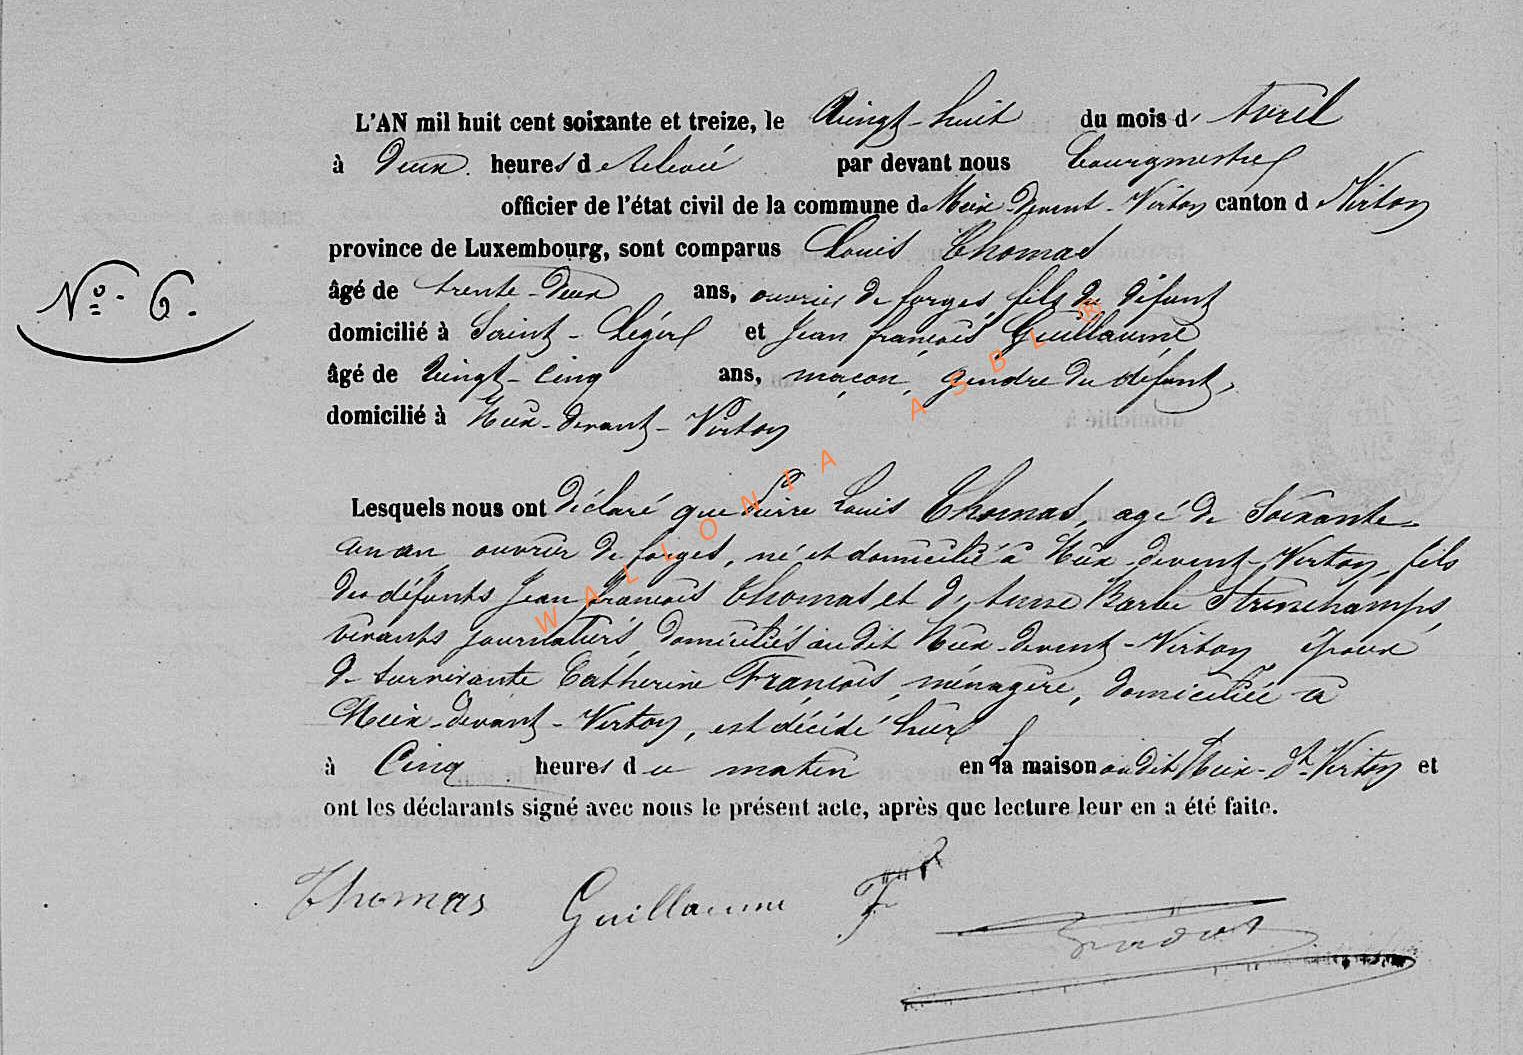 L'AN mil huit cent soixante et treize, le Vingt-huit du mois d'Avril
à Deux heures de relevée par devant nous Bourgmestre
officier de l'état civil de la commune de Meix-devant-Virton canton de Virton
province de Luxembourg, sont comparus Louis Thomas
âgé de trente-deux ans, ouvrier de forges, fils du défunt
domicilié à Saint-Léger et Jean françois Guillaume
âgé de Vingt-cinq ans, maçon, gendre du défunt,
domicilié à Meix-devant-Virton
No. 6.
Lesquels nous ont déclaré que Pierre Louis Thomas, agé de Soixante-
un an, ouvrier de forges, né et domicilié à Meix-devant-Virton, fils
des défunts Jean françois Thomas et d'Anne Barbe
vivants journaliers, domiciliés audit Meix-devant-Virton époux
de survivante Catherine François, ménagère, domiciliée à
Meix-devant-Virton, est décédé hier
à Cinq heures du matin en la maison audit Meix-dt-Virton et
ont les déclarants signé avec nous le présent acte, après que lecture leur en a été faite.
Thomas Guillaume
WALLONIA ASBL ®